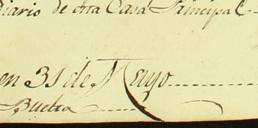 Diario de otra Casa Principal
en 31 de Mayo
Buelta